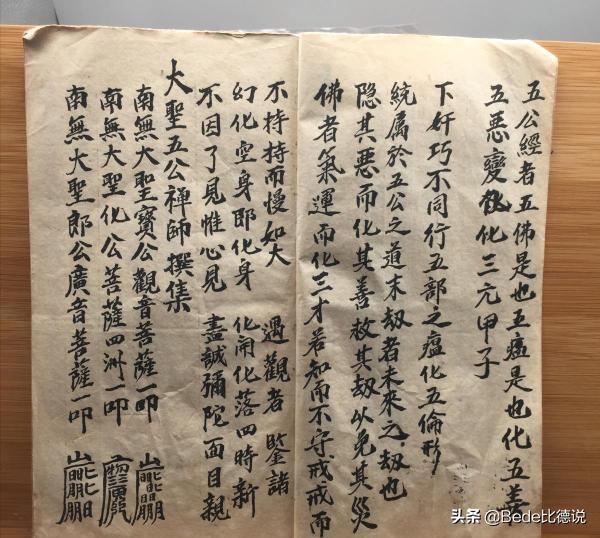 五公經者五佛是也五瘟是也化五善
五惡變化三元甲子
下奸巧不同行五部之瘟化五倫形
統属於五公之道末劫者未來之劫也
隐其惡而化其善救其劫以免其災
佛者氣運而化三才若知而不守戒戒而
不持持而慢如大 遇觀者 鑒諸
幻化空身即化身 化開化落四時新
不因了見惟心見 盡誠彌陀面目親
大聖五公禅師撰集
南無大聖寳公觀音菩薩一叩
南無大聖化公菩薩四洲一叩
南無大聖郎公廣音菩薩一叩
头条 @Bede比德说